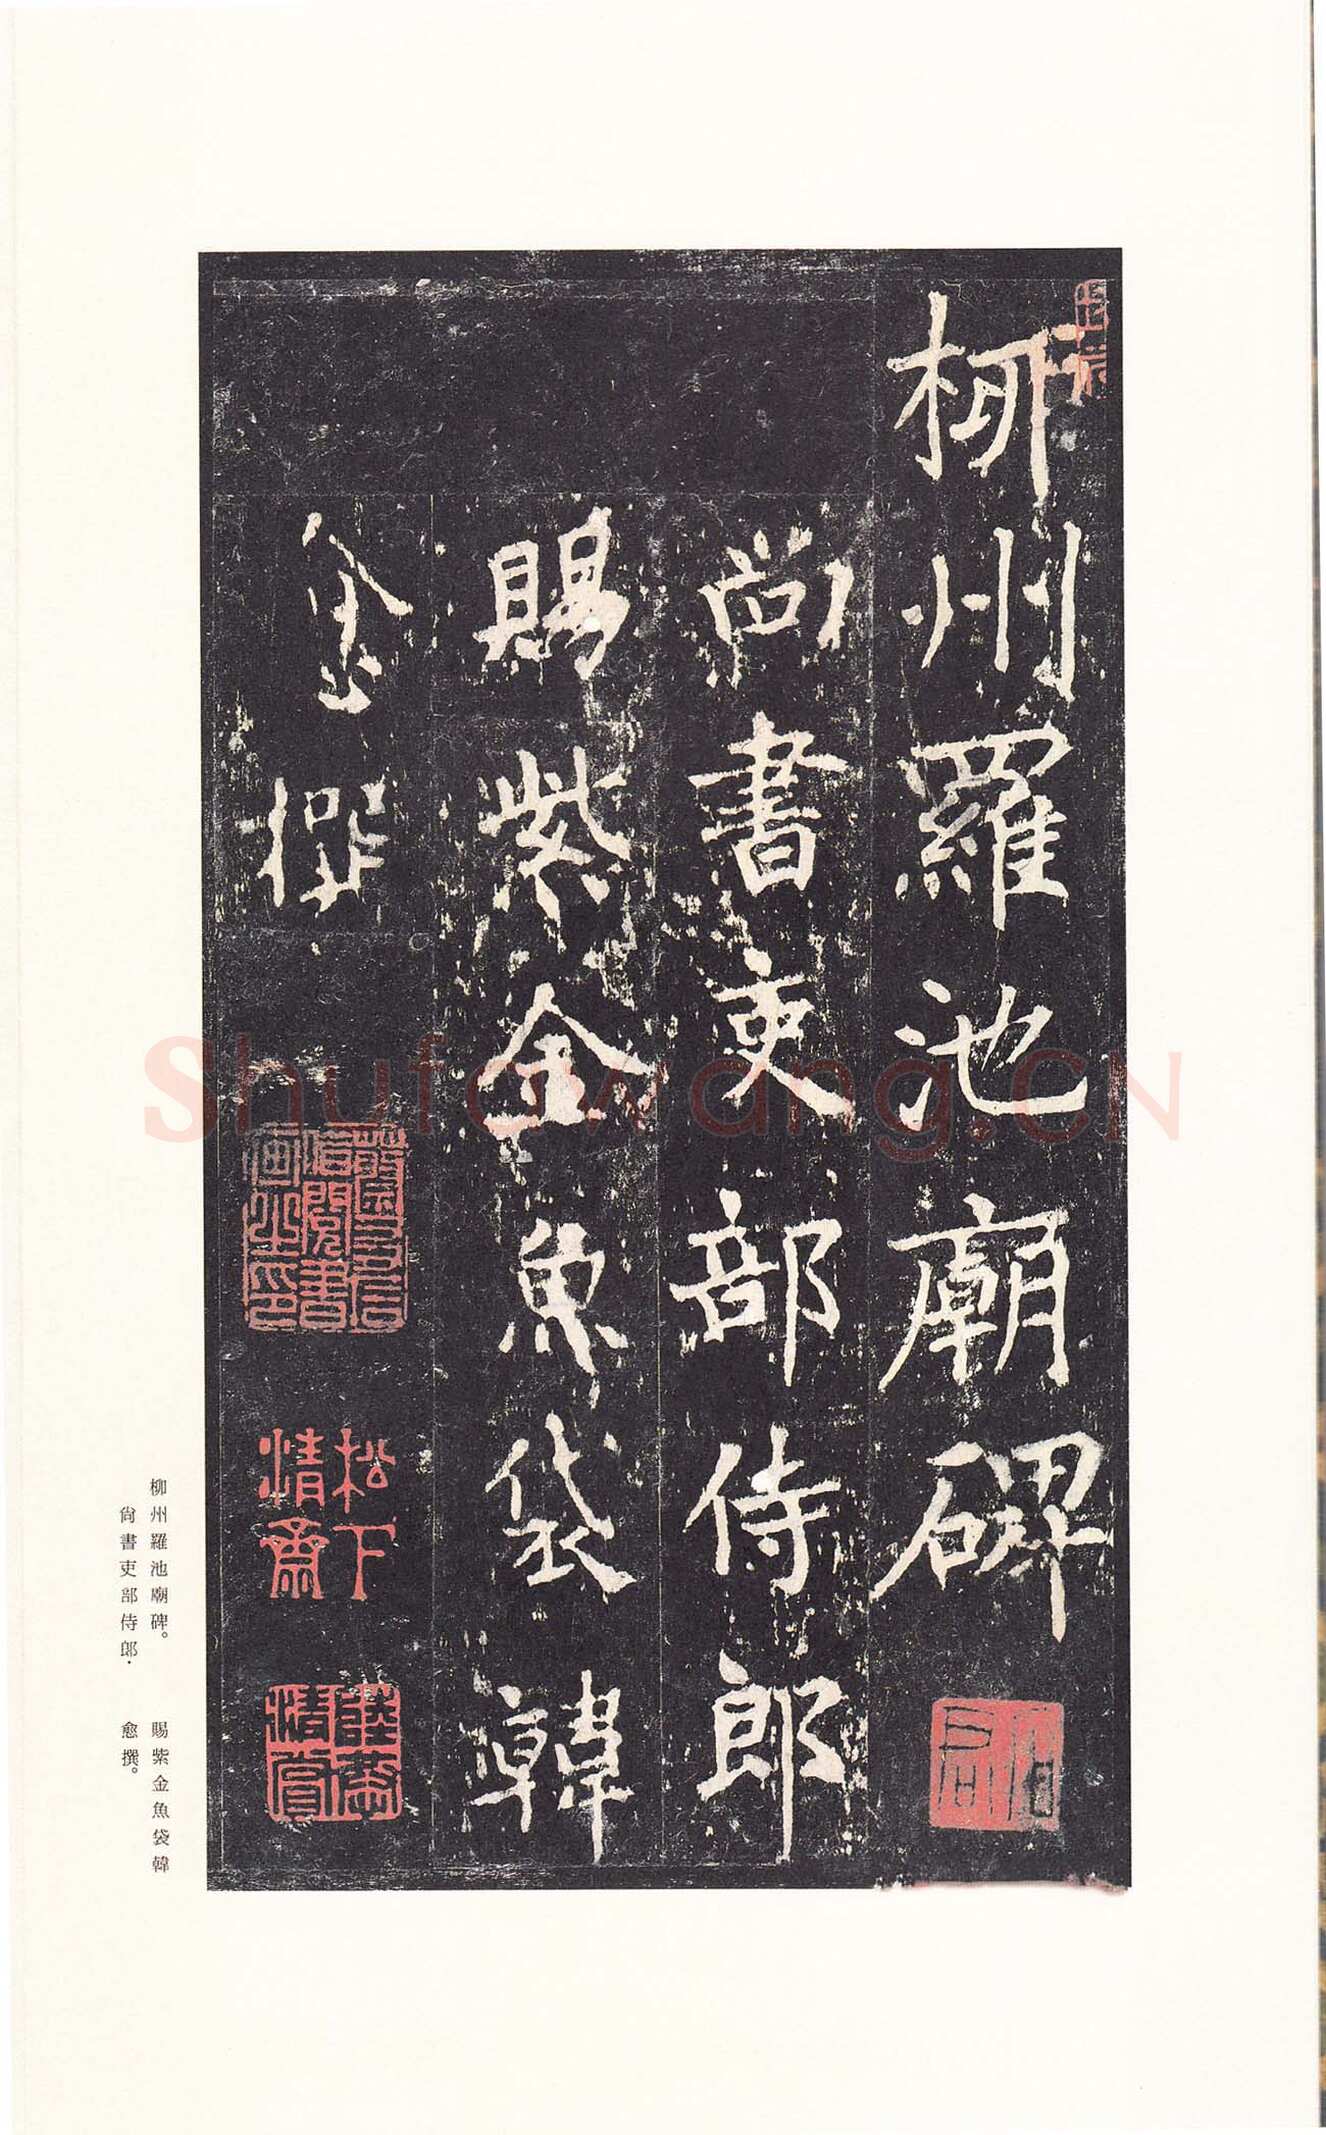 柳州羅池廟碑
尚書吏部侍郎
賜紫金魚袋韓
愈撰
松下
清齋
清賞
柳州羅池廟碑。
尚書吏部侍郎·
賜紫金魚袋韓
愈撰。
Shufawang.CN